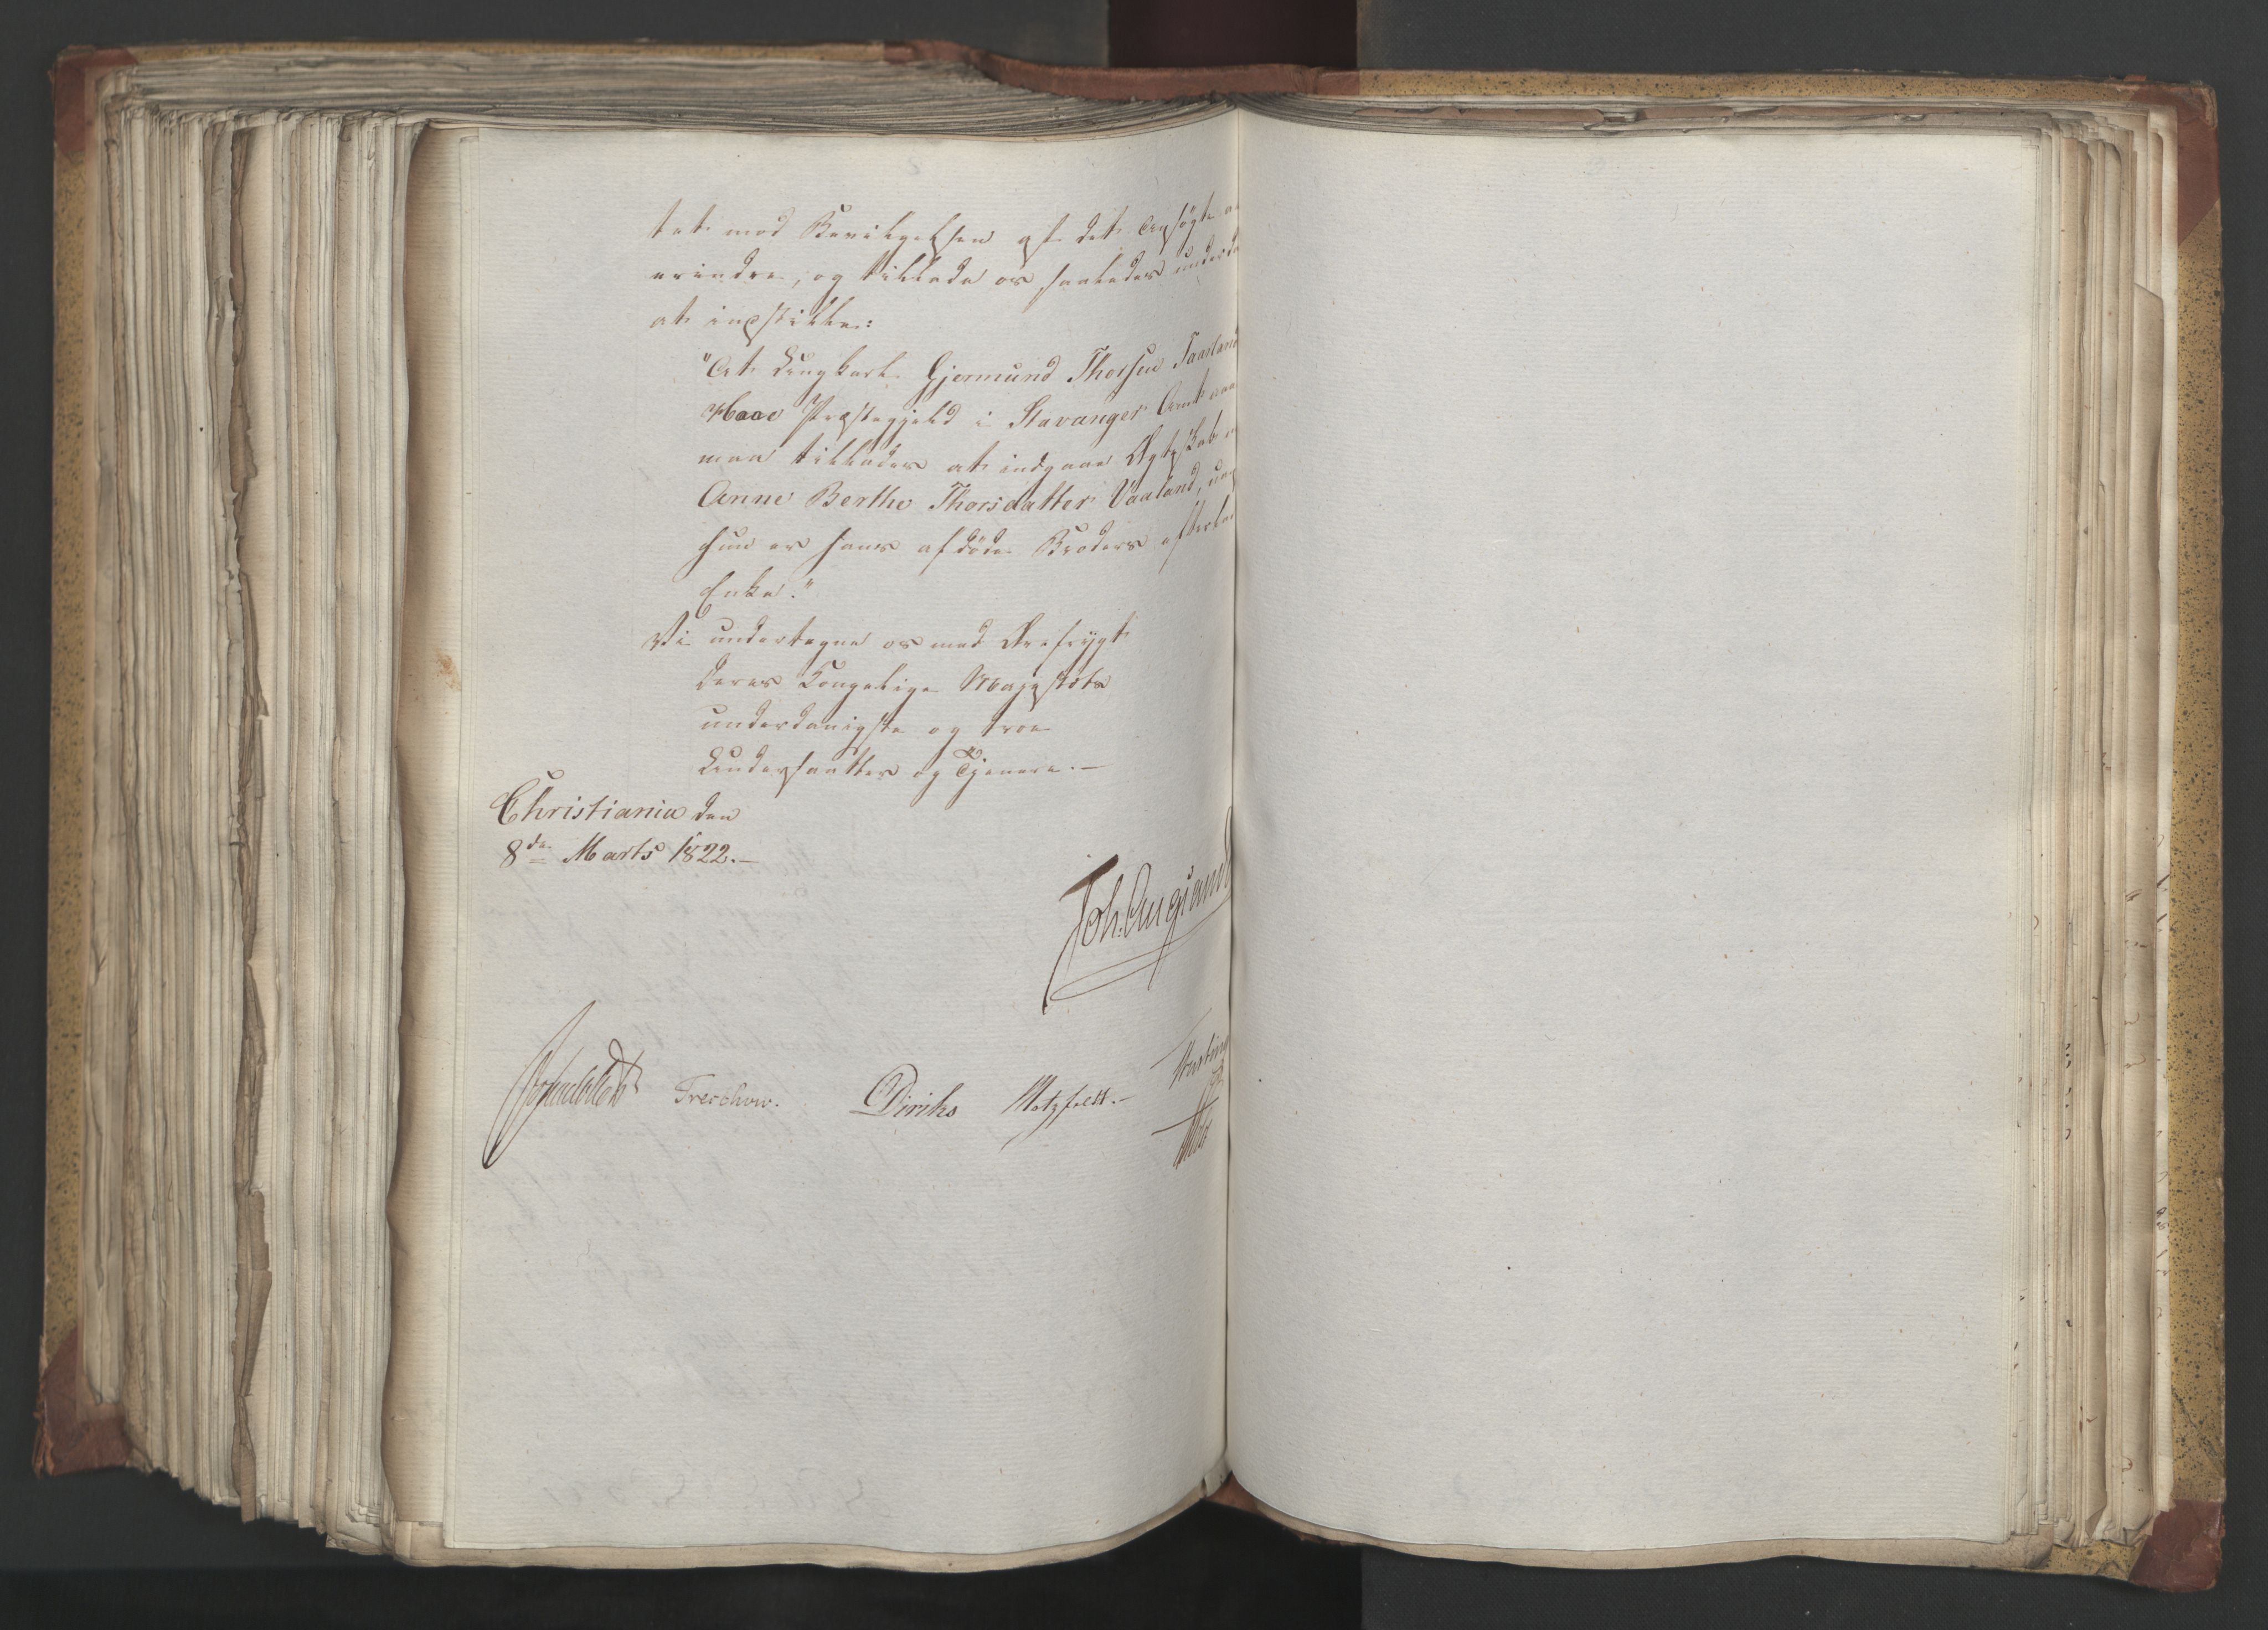 tet mod Bevilgelsen af det Ansøgte
erindre, og tillade os saaledes underd
at indstille:
"At Ungkarl Gjermund Thorsen Taarland
Haae Præstegjeld i Stavanger Amt naa
maa tillades at indgaae Ægteskab
Anne Berthe Thorsdatter Vaaland, uag
hun er hans afdøde Broders efterla
Enke."
Vi undertegne os med Ærefrygt
Deres Kongelige Majestæts
underdanigste og troe
Undersaatter og Tjenere.—
Christiania den
8de Marts 1822.—
Joh. Aug. Sand
Treschow.
Diriks
Motzfeldt.—